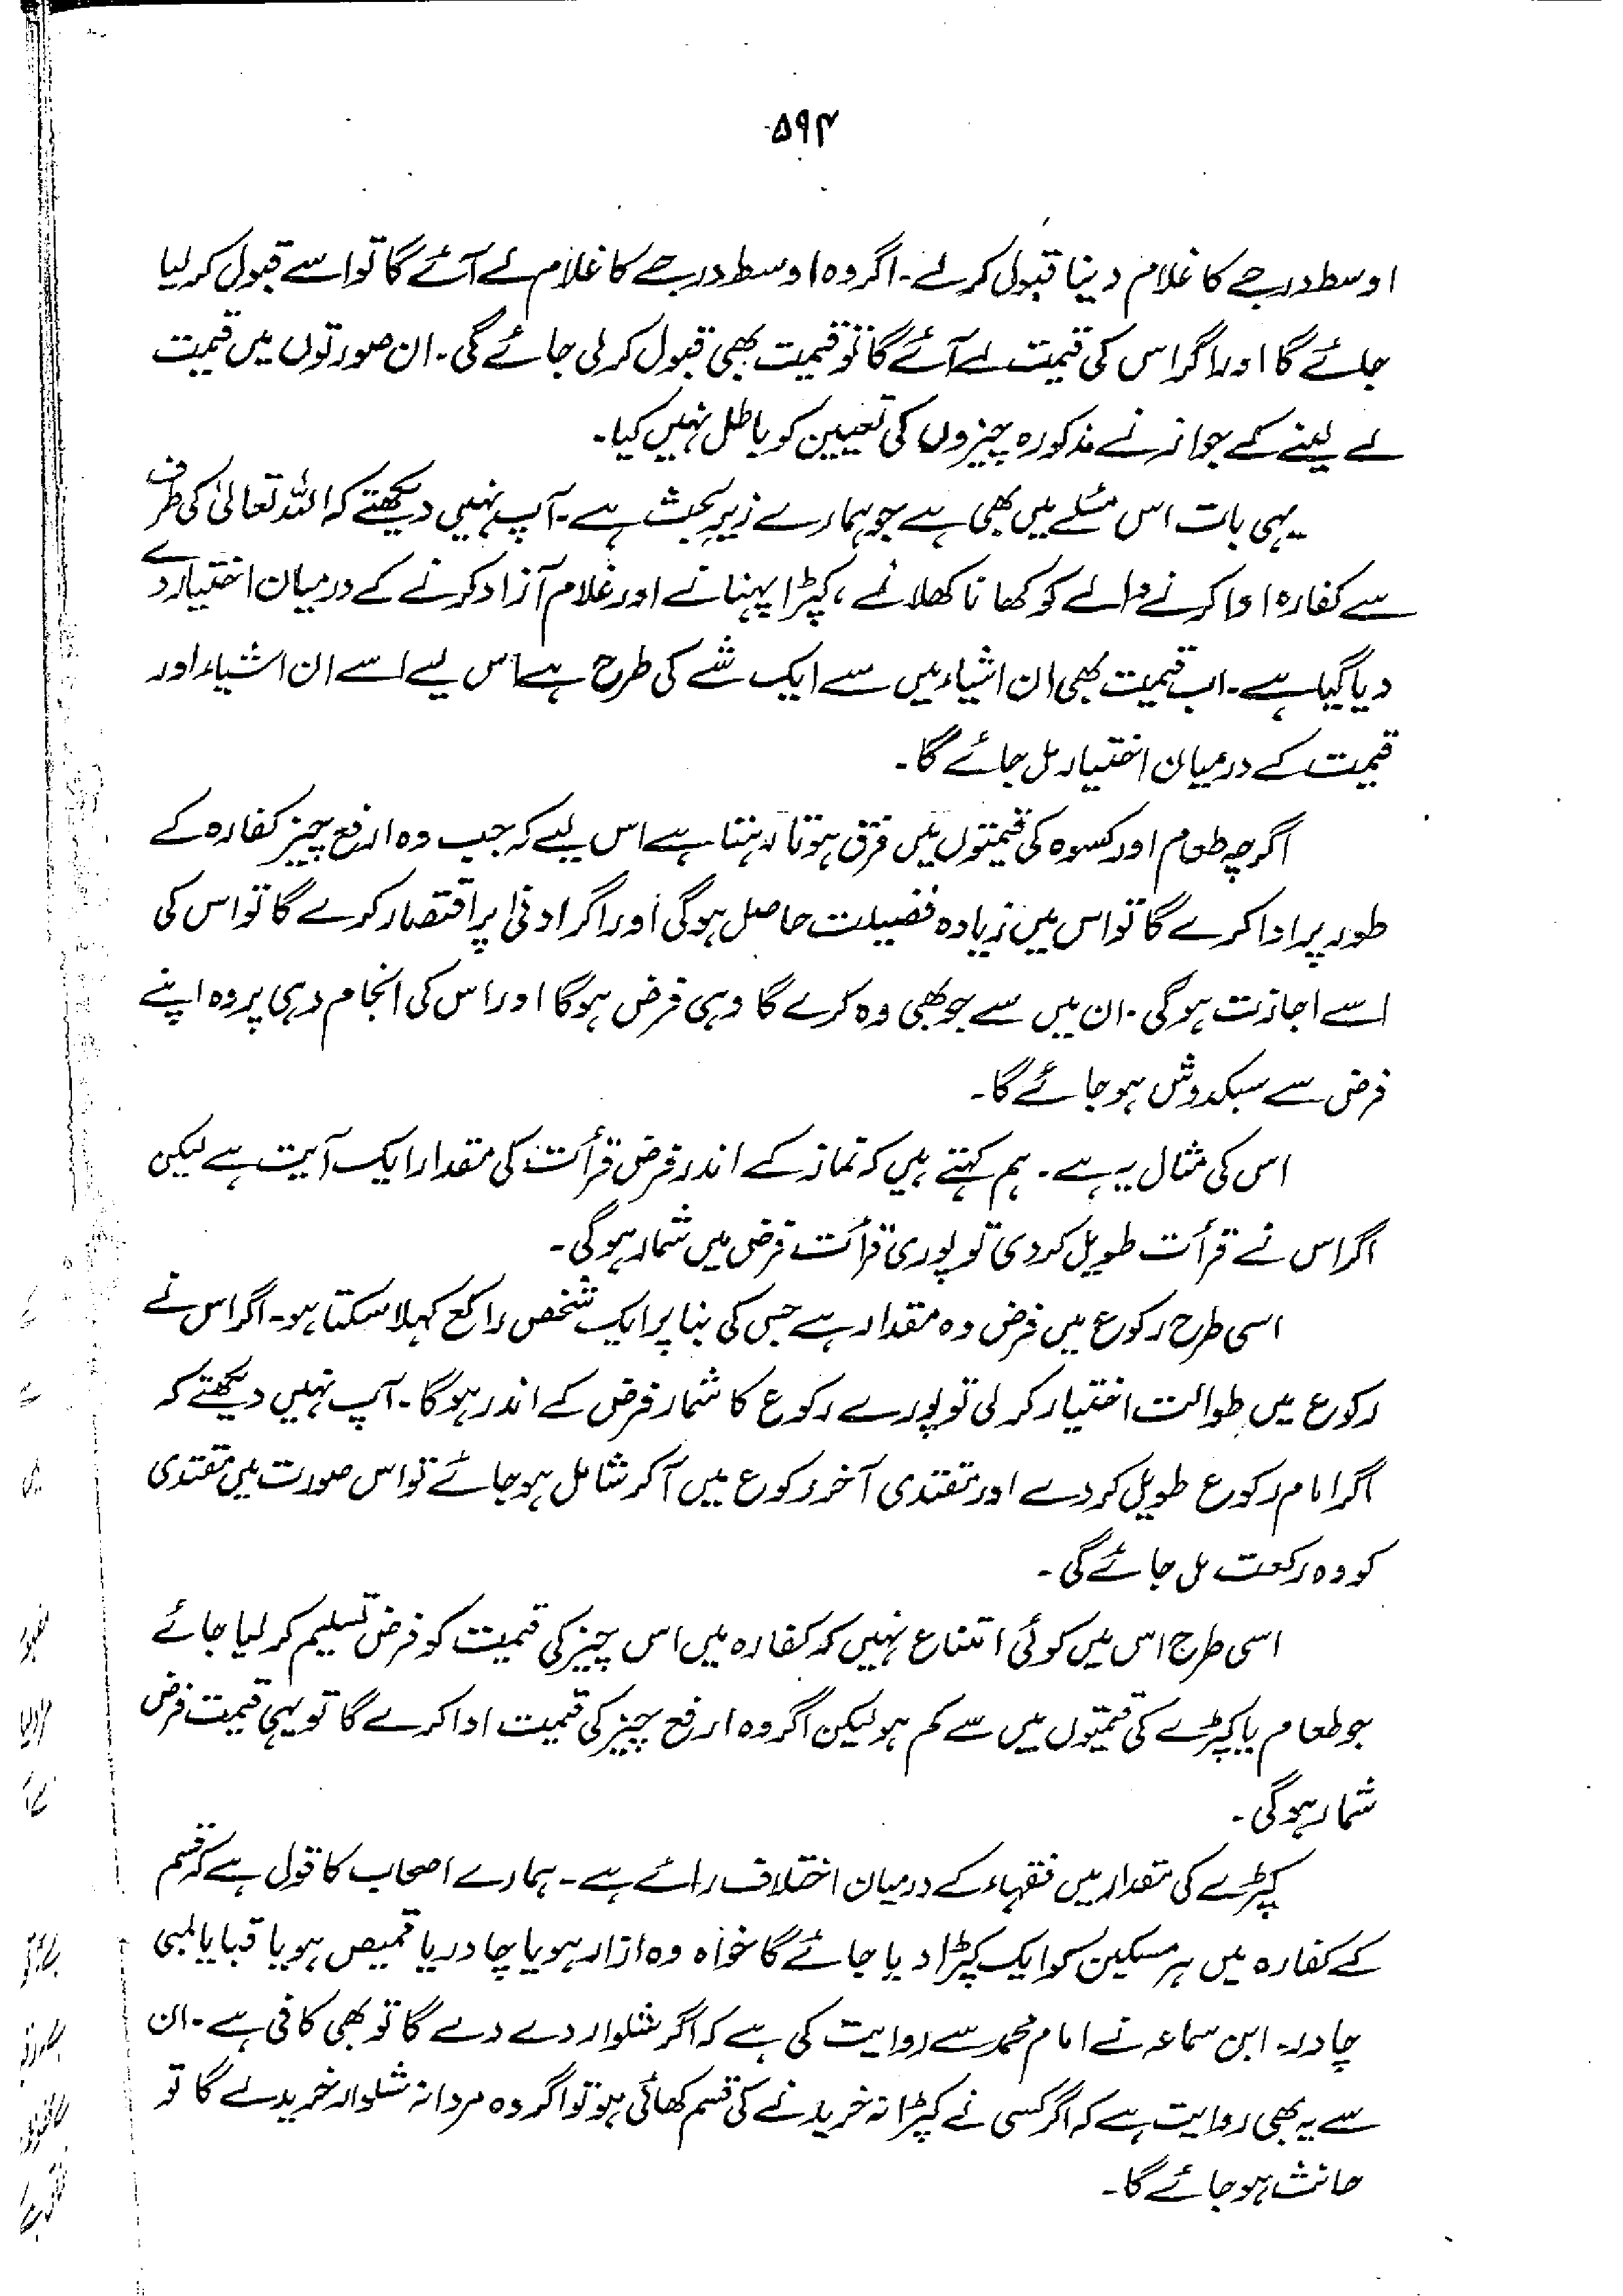 ۵۹۴
اوسط درجے کا غلام دینا قبول کرلے۔ اگر وہ اوسط درجے کا غلام لے آئے گا تو اسے قبول کر لیا
جائے گا اور اگر اس کی قیمت لے آئے گا تو قیمت بھی قبول کر لی جائے گی۔ ان صورتوں میں قیمت
لے لینے کے جواز نے مذکورہ چیزوں کی تعیین کو باطل نہیں کیا۔
یہی بات اس مسئلے میں بھی ہے جو ہمارے زیر بحث ہے۔ آپ نہیں دیکھتے کہ اللہ تعالیٰ کی طرف
سے کفارہ ادا کرنے والے کو کھانا کھلانے، کپڑا پہنانے اور غلام آزاد کرنے کے درمیان اختیار دے
دیا گیا ہے۔ اب قیمت بھی ان اشیاء میں سے ایک شے کی طرح ہے اس لیے اسے ان اشیاء اور
قیمت کے درمیان اختیار مل جائے گا۔
اگرچہ طعام اور کسوہ کی قیمتوں میں فرق ہوتا رہتا ہے اس لیے کہ جب وہ ارفع چیز کفارہ کے
طور پر ادا کرے گا تو اس میں زیادہ فضیلت حاصل ہوگی اور اگر ادنیٰ پر اقتصار کرے گا تو اس کی
اسے اجازت ہوگی۔ ان میں سے جو بھی وہ کرے گا وہی فرض ہوگا اور اس کی انجام دہی پر وہ اپنے
فرض سے سبکدوش ہو جائے گا۔
اس کی مثال یہ ہے۔ ہم کہتے ہیں کہ نماز کے اندر فرض قرأت کی مقدار ایک آیت ہے لیکن
اگر اس نے قرأت طویل کر دی تو پوری قرأت فرض میں شمار ہوگی۔
اسی طرح رکوع میں فرض وہ مقدار ہے جس کی بنا پر ایک شخص راکع کہلا سکتا ہو۔ اگر اس نے
رکوع میں طوالت اختیار کر لی تو پورے رکوع کا شمار فرض کے اندر ہوگا۔ آپ نہیں دیکھتے کہ
اگر امام رکوع طویل کر دے اور مقتدی آخر رکوع میں آکر شامل ہو جائے تو اس صورت میں مقتدی
کو وہ رکعت مل جائے گی۔
اسی طرح اس میں کوئی امتناع نہیں کہ کفارہ میں اس چیز کی قیمت کو فرض تسلیم کر لیا جائے
جو طعام یا کپڑے کی قیمتوں میں سے کم ہو لیکن اگر وہ ارفع چیز کی قیمت ادا کرے گا تو یہی قیمت فرض
شمار ہوگی۔
کپڑے کی مقدار میں فقہاء کے درمیان اختلاف رائے ہے۔ ہمارے اصحاب کا قول ہے کہ قسم
کے کفارہ میں ہر مسکین کو ایک کپڑا دیا جائے گا خواہ وہ ازار ہو یا چادر یا قمیص ہو یا قبا یا لمبی
چادر۔ ابن سماعہ نے امام محمد سے روایت کی ہے کہ اگر شلوار دے دے گا تو بھی کافی ہے۔ ان
سے یہ بھی روایت ہے کہ اگر کسی نے کپڑا نہ خریدنے کی قسم کھائی ہو تو اگر وہ مردانہ شلوار خریدلے گا تو
حانث ہو جائے گا۔